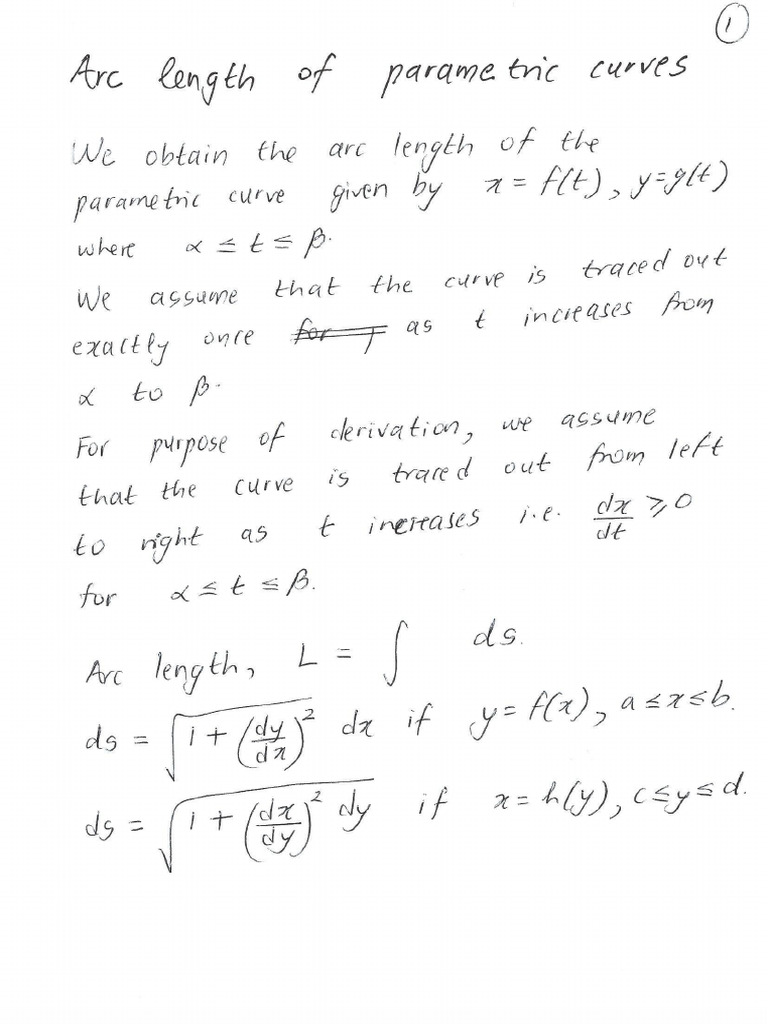 ①
Arc length of parametric curves
We obtain the arc length of the
parametric curve given by x = f(t), y=g(t)
where α ≤ t ≤ β.
We assume that the curve is traced out
exactly once as t increases from
α to β.
For purpose of derivation, we assume
that the curve is traced out from left
to right as t increases i.e. dx/dt ≥ 0
for α ≤ t ≤ β.
Arc length, L = ∫ ds.
ds = √(1 + (dy/dx)²) dx if y = f(x), a ≤ x ≤ b.
ds = √(1 + (dx/dy)²) dy if x = h(y), c ≤ y ≤ d.